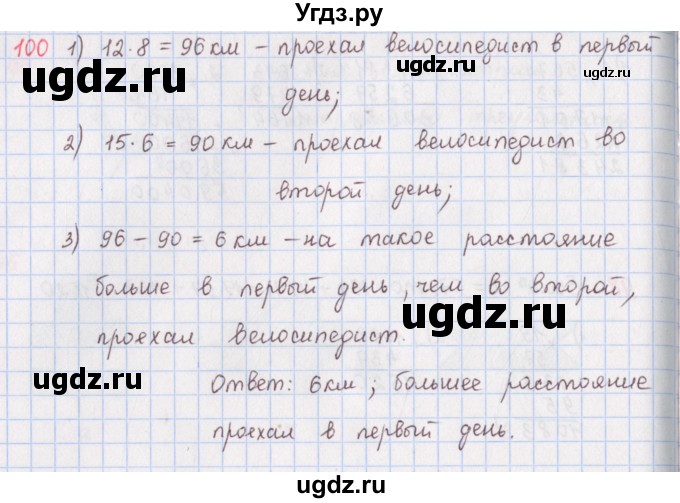 Угдз.ру
100 1) 12·8 = 96 км – проехал велосипедист в первый
ugdz.ru
ugdz.ru
ugdz.ru
день;
2) 15·6 = 90 км – проехал велосипедист во
ugdz.ru
второй день;
3) 96 – 90 = 6 км – на такое расстояние
больше в первый день, чем во второй,
ugdz.ru
проехал велосипедист.
ugdz.ru
Ответ: 6 км; большее расстояние
проехал в первый день.
ugdz.ru
ugdz.ru